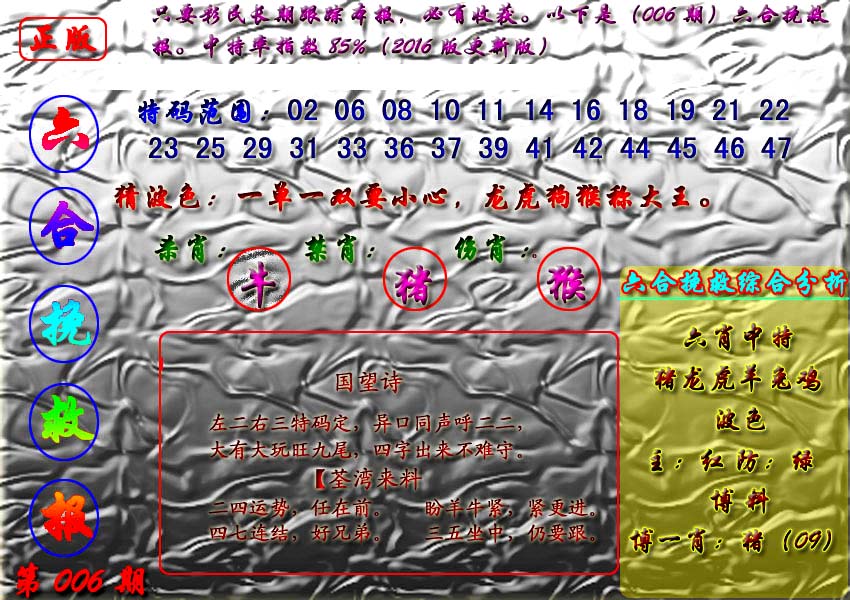 正版
只要彩民长期跟踪本报，必有收获。以下是（006期）六合挽救
报。中特率指数85%（2016版更新版）
六合挽救报
第006期
特码范围：02 06 08 10 11 14 16 18 19 21 22
23 25 29 31 33 36 37 39 41 42 44 45 46 47
猜波色：一单一双要小心，龙虎狗猴称大王。
杀肖：牛 禁肖：猪 伤肖：猴。
国望诗
左二右三特码定，异口同声呼二二，
大有大玩旺九尾，四字出来不难守。
【荃湾来料
二四运势，任在前。 盼羊牛紧，紧更进。
四七连结，好兄弟。 三五坐中，仍要跟。
六合挽救综合分析
六肖中特
猪龙虎羊兔鸡
波色
主：红防：绿
博料
博一肖：猪（09）